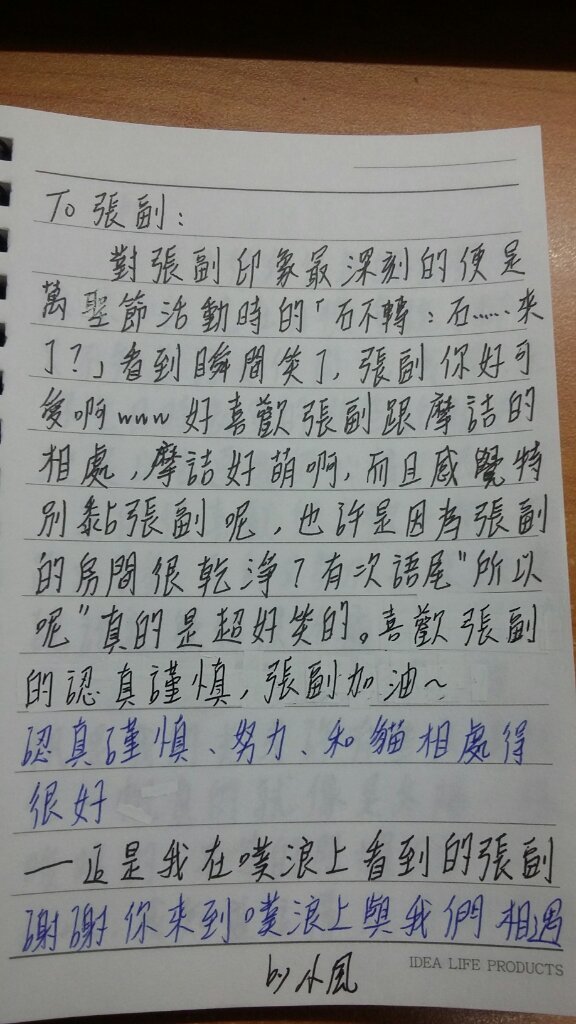 To 張副:
對張副印象最深刻的便是
萬聖節活動時的「石不轉：石……來
了?」看到瞬間笑了,張副你好可
愛啊www好喜歡張副跟摩詰的
相處,摩詰好萌啊,而且感覺特
別黏張副呢,也許是因為張副
的房間很乾淨?有次語尾"所以
呢"真的是超好笑的。喜歡張副
的認真謹慎,張副加油~
認真謹慎、努力、和貓相處得
很好
—正是我在噗浪上看到的張副
謝謝你來到噗浪上與我們相遇
by 小風
IDEA LIFE PRODUCTS